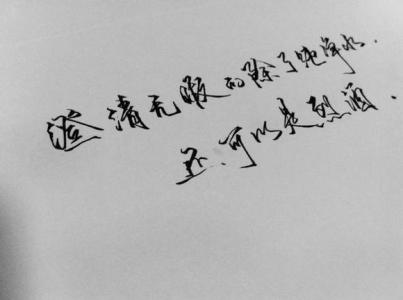 澄清无暇的除了纯净水.
还可以是烈酒.